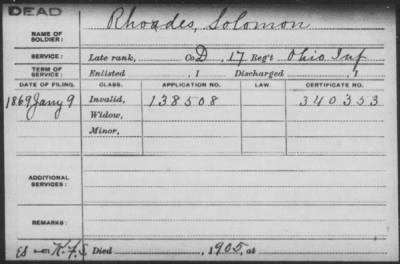 DEAD
NAME OF SOLDIER: Rhoades, Solomon
SERVICE: Late rank, Co. D, 17 Reg't Ohio Inf
TERM OF SERVICE: Enlisted , 1 Discharged , 1
DATE OF FILING. CLASS. APPLICATION NO. LAW. CERTIFICATE NO.
1869 Jany 9 Invalid, 138508 340353
Widow,
Minor,
ADDITIONAL SERVICES:
REMARKS:
Died , 1905, at